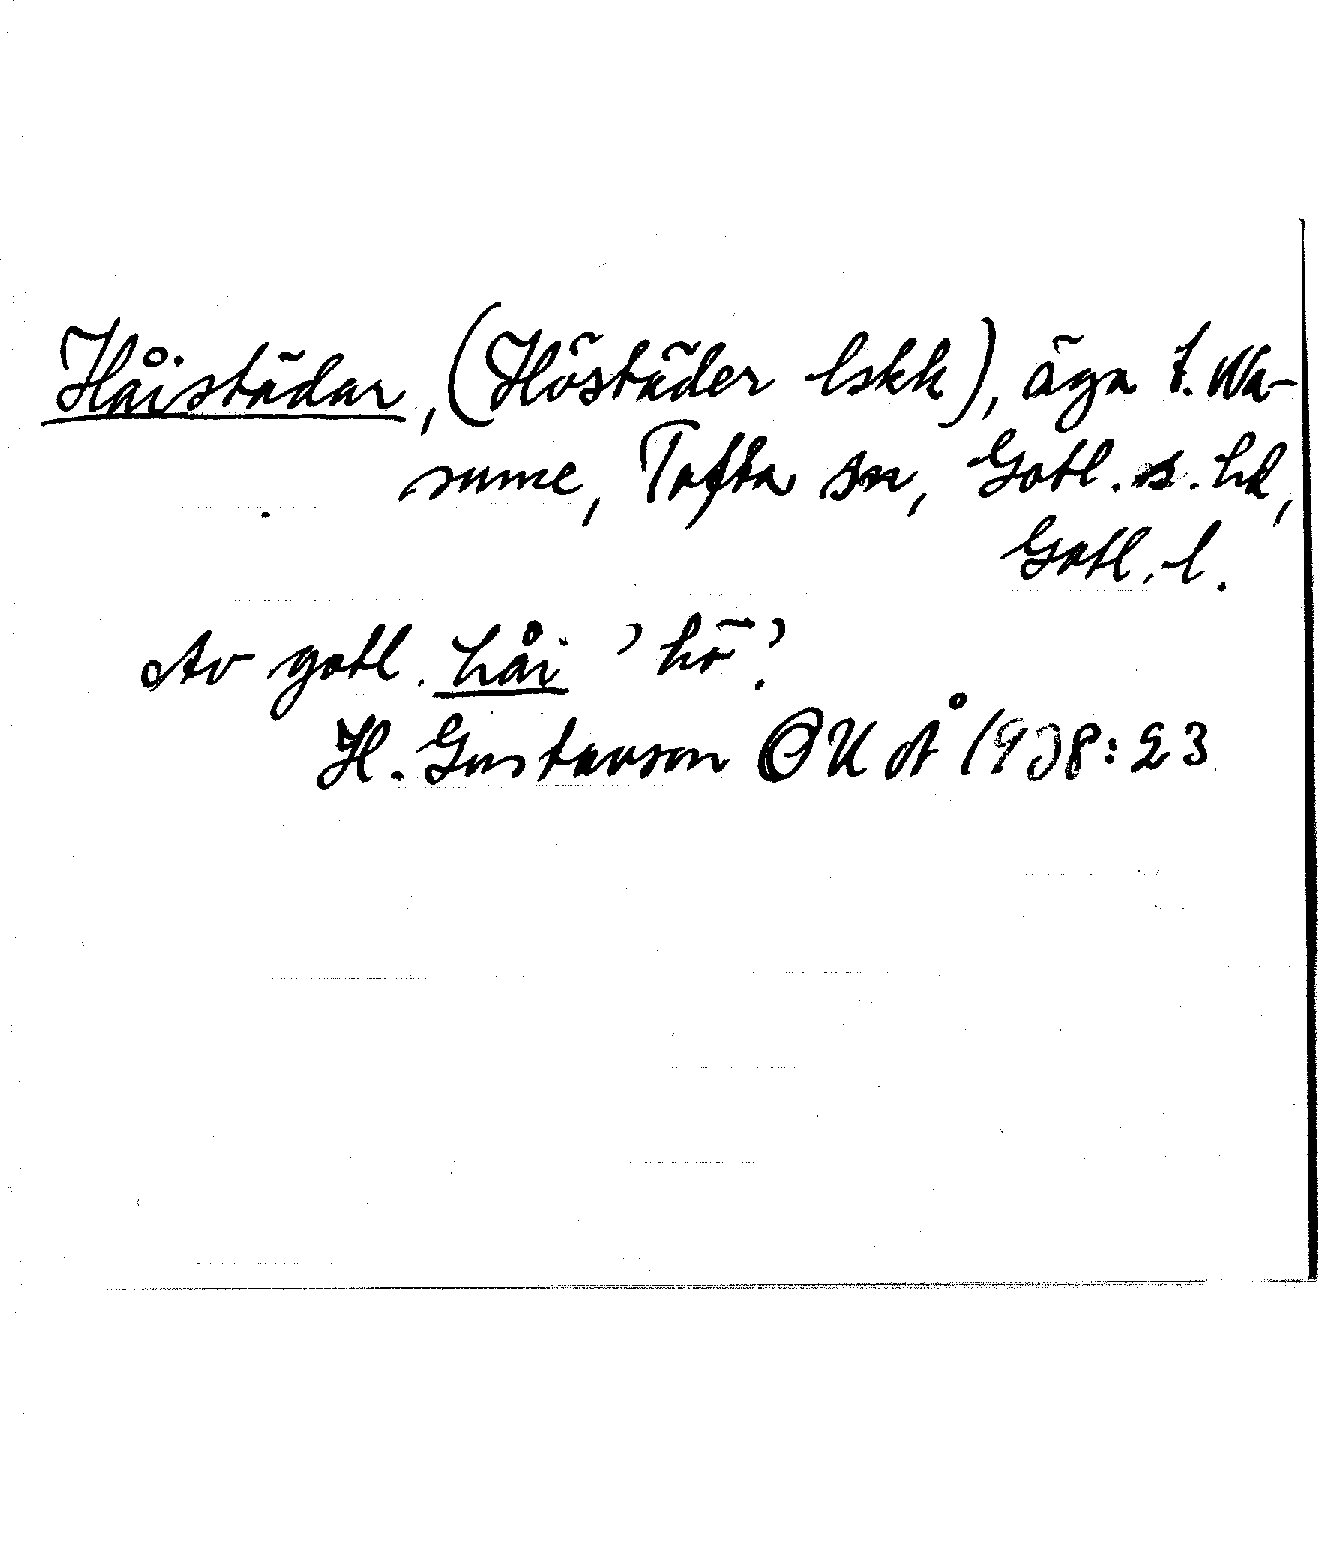 Håistädar, (Höstäder lskk), äga t. Wa-
sume, Tofta sn, Gotl. s. hd,
Gotl. l.
Av gotl. håi 'hö'.
H. Gustavson OUÅ 1938:23